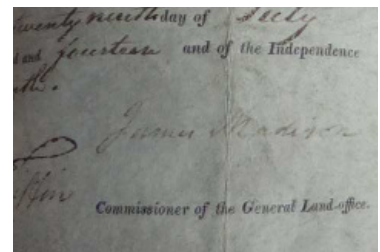 twenty ninth day of July
and fourteen and of the Independence
James Madison
Commissioner of the General Land-office.